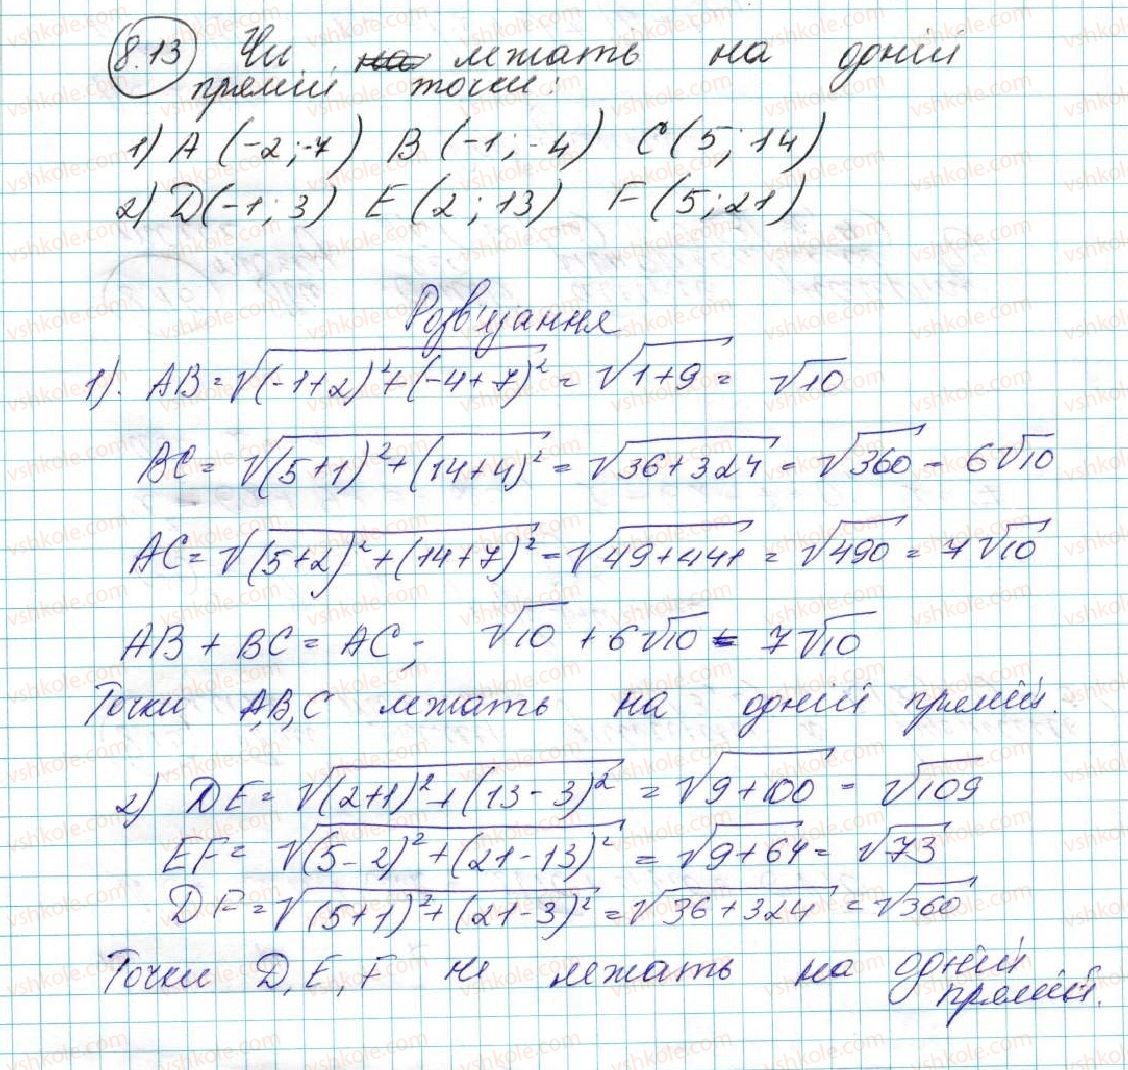 8.13 Чи лежать на одній
прямій точки:
1) A (-2;-7) B (-1;-4) C (5;14)
2) D(-1;3) E (2;13) F (5;21)
Розв'язання
1). AB = √((-1+2)²+(-4+7)²) = √(1+9) = √10
BC = √((5+1)²+(14+4)²) = √(36+324) = √360 = 6√10
AC = √((5+2)²+(14+7)²) = √(49+441) = √490 = 7√10
AB + BC = AC; √10 + 6√10 = 7√10
Точки A,B,C лежать на одній прямій.
2) DE = √((2+1)²+(13-3)²) = √(9+100) = √109
EF = √((5-2)²+(21-13)²) = √(9+64) = √73
DF = √((5+1)²+(21-3)²) = √(36+324) = √360
Точки D, E, F не лежать на одній
прямій.